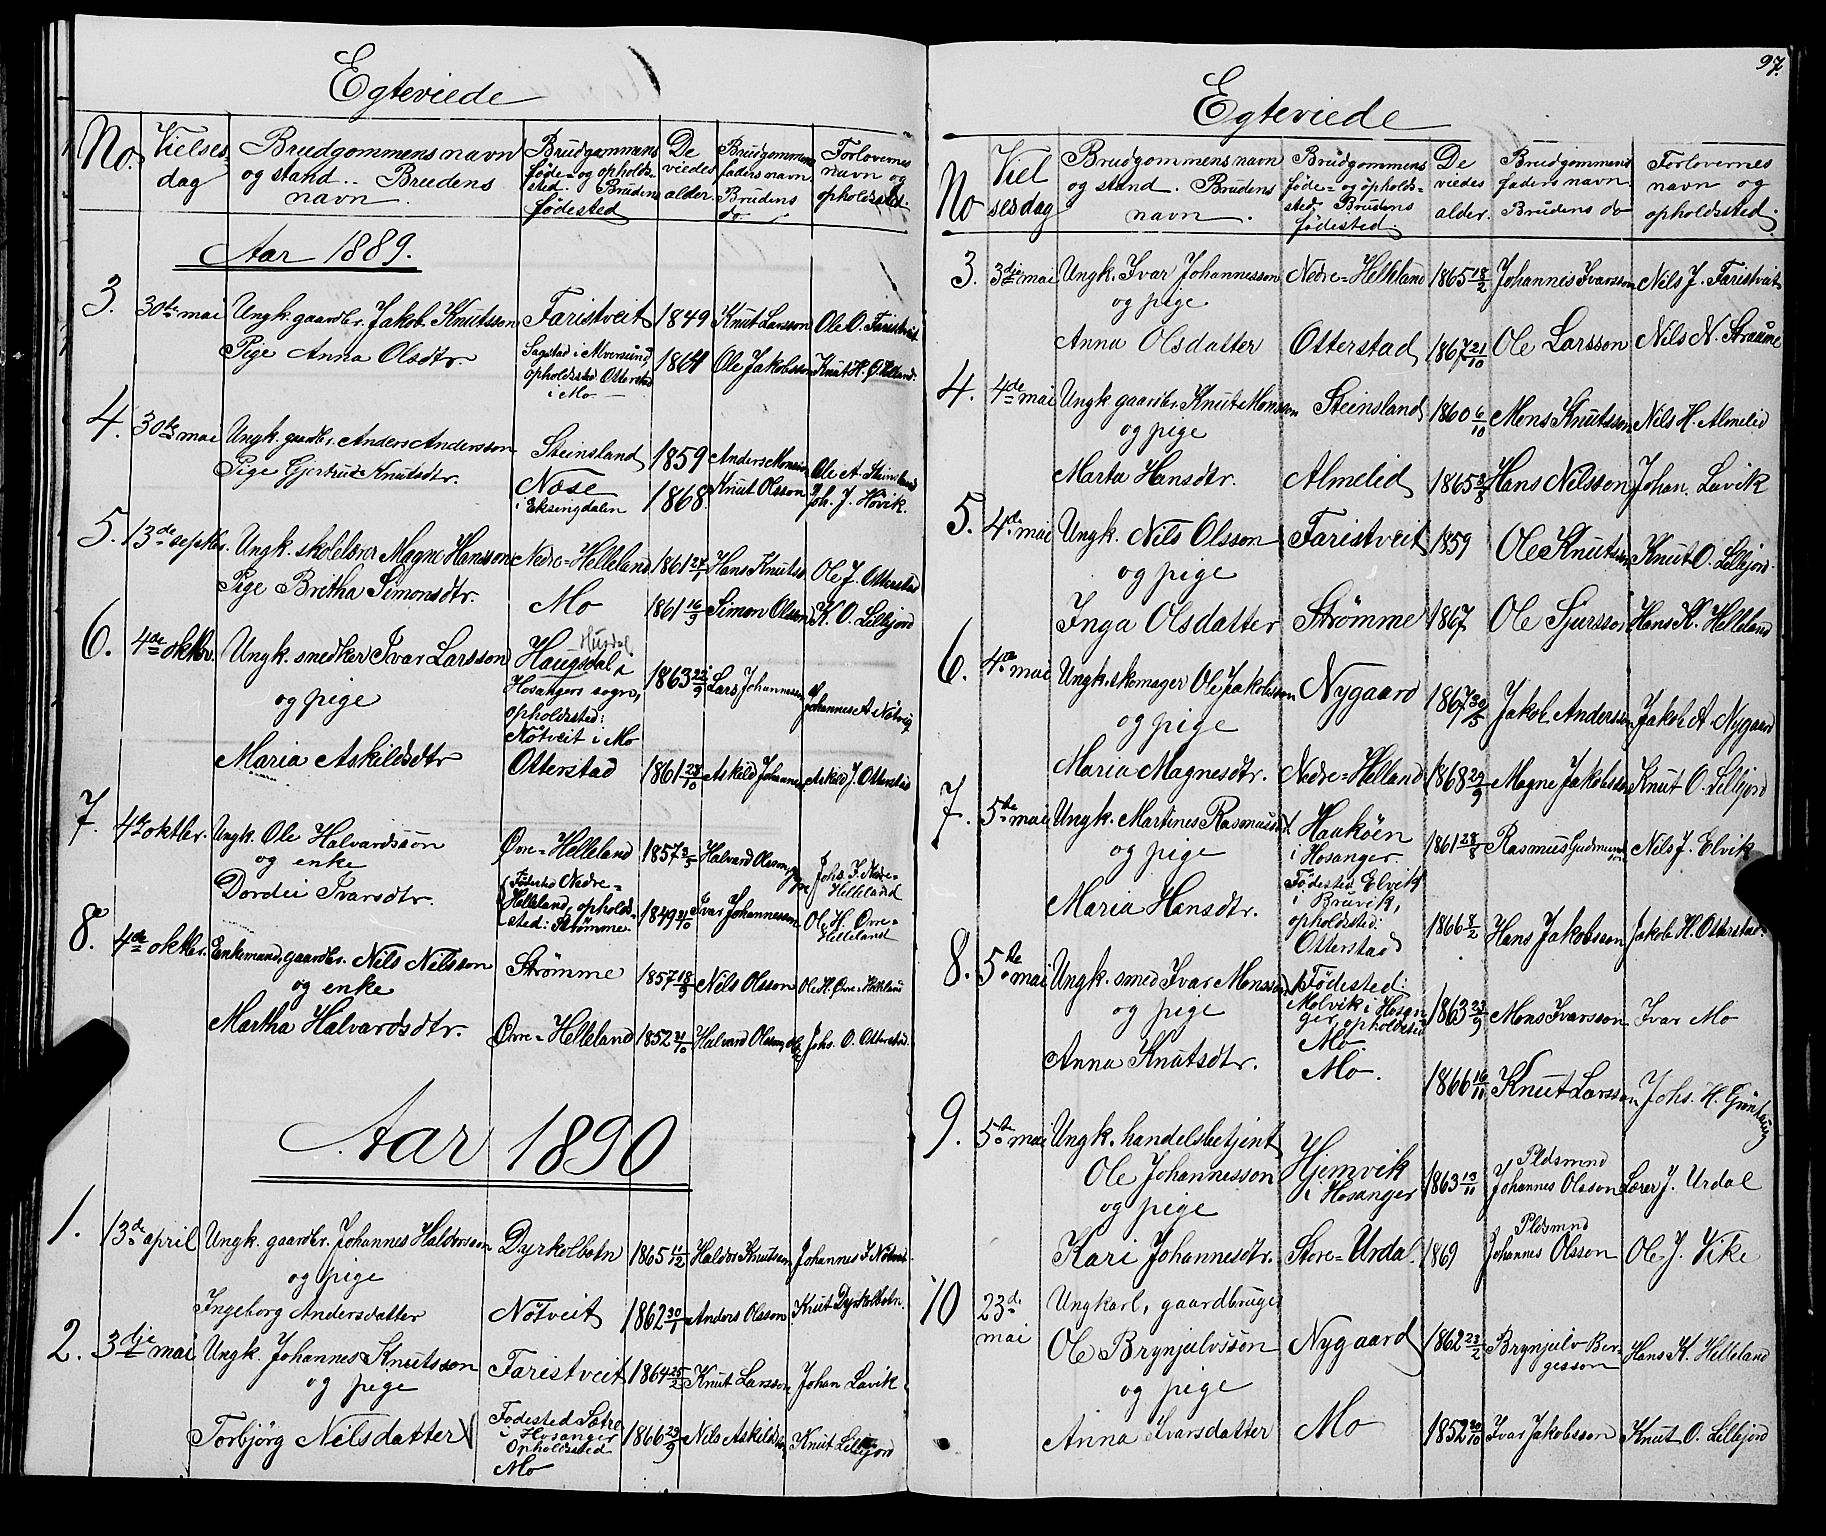 Egteviede
No.
Vielses
dag
Brudgommens navn
og stand .. Brudens
navn.
Brudgommens
føde- og opholds-
sted. Brudens
fødested
De
viedes
alder.
Brudgommens
faders navn.
Brudens
do
Forlovernes
navn og
opholdssted.
Aar 1889.
3. 30te mai Ungk. gaardbr. Jakob Knutsson Faristveit 1849 Knut Larsson Ole O. Faristveit
Pige Anna Olsdtr. Sagstad i Alversund, opholdssted Otterstad i Mo 1864 Ole Jakobsson Knut H. Ø Helland.
4. 30te mai Ungk. gardbr. Anders Andersson Steinsland 1859 Anders Monsson Ole A. Steinsland
Pige Gjertrud Knutsdtr. Nose i Eksingdalen 1868 Knut Olsson Joh. J. Høvik.
5. 13de septbr. Ungk. skolelærer Magne Hansson Nedre-Helleland 1861 27/1 Hans Knuts. Ole J. Otterstad
Pige Britha Simonsdtr. Mo 1861 16/9 Simon Olsson K. O. Lillejord
6. 4de oktbr. Ungk. snedker Ivar Larsson Husdal Haugsdal i Hosangers sogn, opholdssted: Nötveit i Mo 1863 22/9 Lars Johannessen Johannes A Nötveit
og pige
Maria Askildsdtr Otterstad 1861 28/10 Askild Johannes Askild J. Otterstad
7. 4de oktbr. Ungk. Ole Halvardsson Øvre-Helleland 1857 3/5 Halvard Olsson Johs. I. Nedre-Helleland
og enke
Dordei Ivarsdtr. Fødested Nedre-Helleland, opholdssted: Strømme 1849 21/10 Ivar Johannessen Ole H. Øvre-Helleland
8. 4de oktbr. Enkemand, gaardbr. Nils Nilsson Strømme 1857 18/9 Nils Olsson Ole H. Øvre-Helleland
og enke
Martha Halvardsdtr. Øvre-Helleland 1852 21/10 Halvard Olsson Johs. O. Otterstad.
Aar 1890
1. 13de april Ungk. gaardbr. Johannes Haldorsson Dyrkolbotn 1865 11/12 Haldor Knutsson Johannes I Nötveit
og pige
Ingeborg Andersdatter Nötveit 1862 30/1 Anders Olsson Knut Dyrkolbotn.
2. 3dje mai Ungk. Johannes Knutsson Faristveit 1864 25/2 Knut Larsson Johan Lavik
og pige
Torbjörg Nilsdatter Fødested Sætre i Hosanger Opholdssted Mo 1866 29/9 Nils Askilds. Knut Lillejord
97.
Egteviede
No
Viel
sesdag
Brudgommens navn
og stand. Brudens
navn.
Brudgommens
føde- og opholds-
sted. Brudens
fødested.
De
viedes
alder.
Brudgommens
faders navn.
Brudens do
Forlovernes
navn og
opholdssted.
3. 3dje mai Ungk. Ivar Johannesson Nedre-Helleland 1865 18/2 Johannes Ivarsson Nils J. Faristveit
og pige
Anna Olsdatter Otterstad 1867 21/10 Ole Larsson Nils N. Straume
4. 4de mai Ungk gaardbr. Knut Monsson Steinsland 1860 6/10 Mons Knutsson Nils H. Almelid
og pige
Marta Hansdtr. Almelid 1865 8/8 Hans Nilsson Johan. Lavik
5. 4de mai Ungk. Nils Olsson Faristveit 1859 Ole Knutsson Knut O. Lillejord.
og pige
Inga Olsdatter Strømme 1867 Ole Sjursson Hans K. Helleland
6. 4de mai Ungk. skomager Ole Jakobsson Nygaard 1867 30/5 Jakob Andersson Jakob A Nygaard
og pige
Maria Magnesdtr. Nedre-Helland 1868 29/9 Magne Jakobsson Knut O. Lillejord
7. 5te mai Ungk. Martines Rasmussen Haakøen i Hosanger 1861 28/8 Rasmus Gudmundsson Nils J. Elvik
og pige
Maria Hansdtr. Fødested Elvik i Bruvik, opholdssted: Otterstad 1866 8/2 Hans Jakobsson Jakob H. Otterstad.
8. 5te mai Ungk. smed Ivar Monsson Fødested: Molvik i Hosanger, opholdssted Mo. 1863 23/9 Mons Ivarsson Ivar Mo
og pige
Anna Knutsdtr. Mo. 1866 16/11 Knut Larsson Johs. H. Grønhaug
9. 5te mai Ungk. handelsbetjent
Ole Johannesson Hjemvik i Hosanger 1863 13/11 Pldsmnd Johannes Olsson Lærer J. Urdal
og pige
Kari Johannesdtr. Store-Urdal 1869 Pldsmnd Johannes Olsson Ole J. Vike
10 23de mai Ungkarl, gaardbruger
Ole Brynjulvsson Nygaard 1862 23/2 Brynjulv Bergesson Hans K. Helleland
og pige
Anna Ivarsdatter Mo 1852 20/10 Ivar Jakobsson Knut O. Lillejord